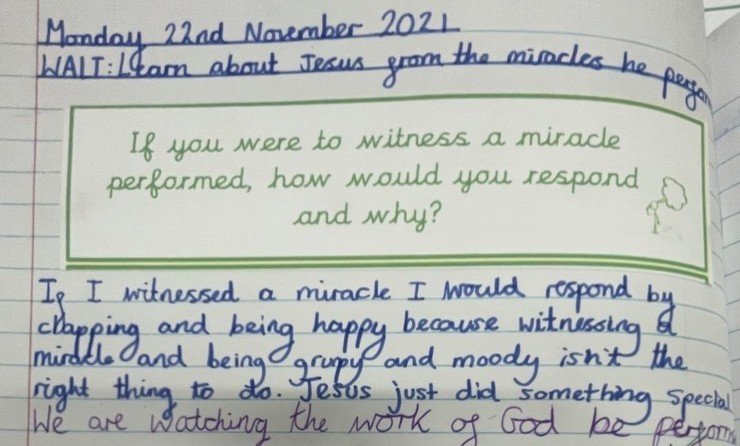 Monday 22nd November 2021
WALT: Learn about Jesus from the miracles he
If you were to witness a miracle
performed, how would you respond
and why?
If I witnessed a miracle I would respond by
clapping and being happy because witnessing a
miracle and being grupy and moody isn't the
right thing to do. Jesus just did something special
We are watching the work of God be